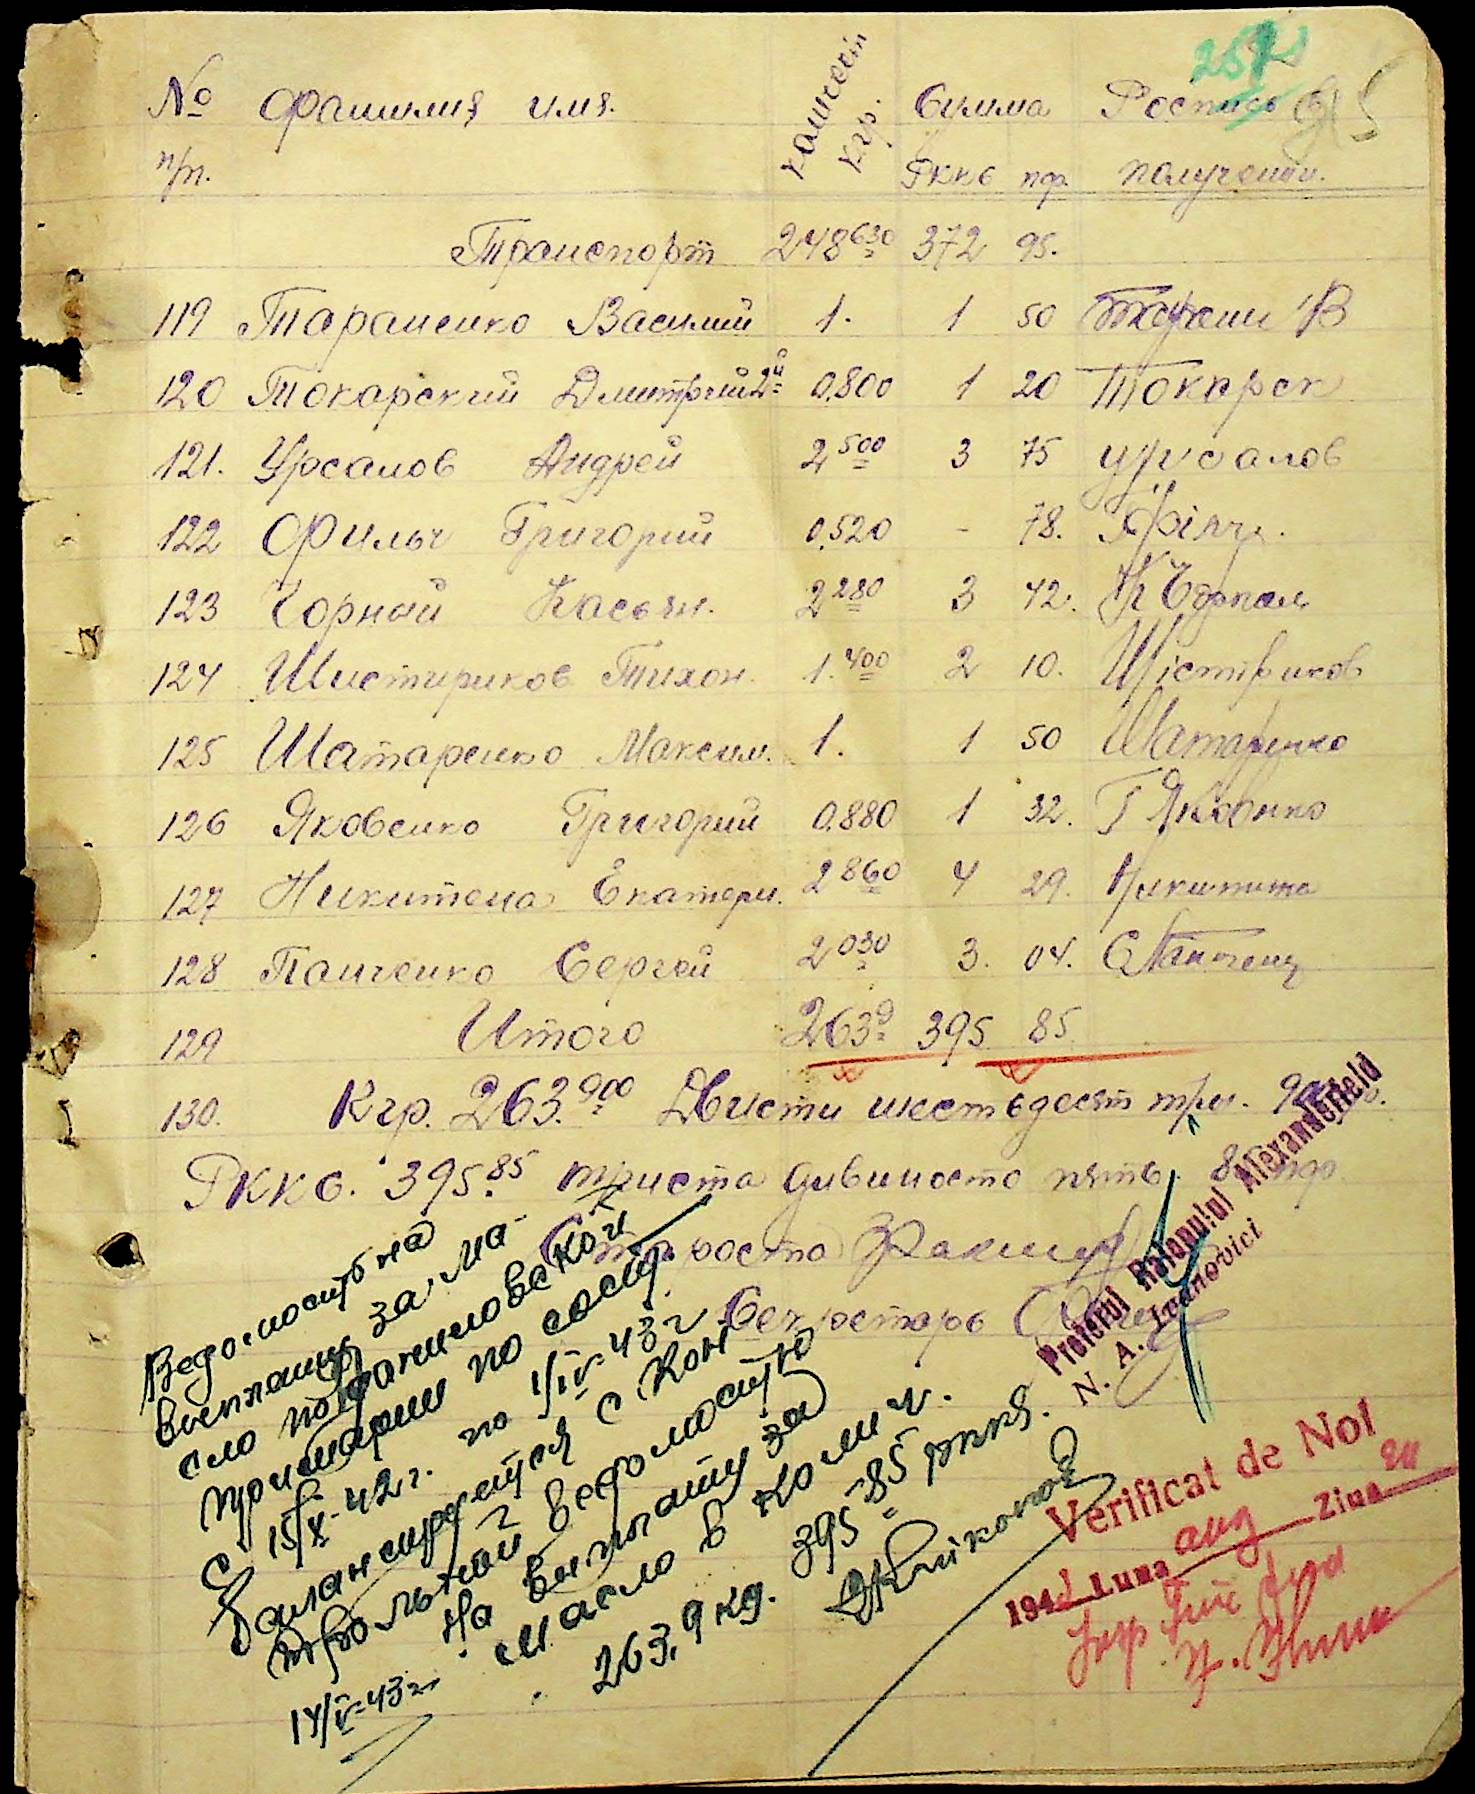 № Фамилия имя. Количест кгр. Сумма Роспись в
п/п. Рккв пф. получении.
Транспорт 248 630 372 95.
119 Тараненко Василий 1. 1 50 Таранен В
120 Токарский Дмитрий 2й 0,800 1 20 Токарск
121. Урсалов Андрей 2 500 3 75 Урсалов
122 Фильч Григорий 0,520 - 78. Г Філч
123 Чорнай Касьян. 2 280 3 42. К Чорнай
124 Шистириков Тихон. 1. 400 2 10. Шістіриков
125 Шатаренко Максим. 1. 1 50 Шатаренко
126 Яковенко Григорий 0.880 1 32. Г Яковенко
127 Никитена Екатери. 2 860 4 29. Никитина
128 Панченко Сергей 2 030 3. 04. С Панченко
129 Итого 263 9 395 85
130. Кгр. 263. 900 Двисти шестьдесят три.
Рккв. 395. 85 триста дивиносто пять. 85 пф.
Староста
Секретарь
Prefectul Raionului Alexanderfeld
N. A. Ivanovici
Ведомость на
выплату за ма-
сло по даниловской
примарии по сост.
с 15/X-42 г. по 1/IV-43 г
Балансируется с кон
трольной ведомостью
на выплату за
масло в колич.
263,9 кг. 395-85 рккв.
14/V-43 г.
Verificat de Noi
194 Luna aug Ziua